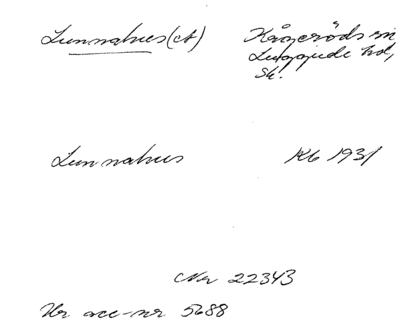 Lunnahus (A) Kågeröds sn
Luggude hd,
Sk.
Lunnahus Kb 1931
Nr 22343
Ur acc-nr 5688